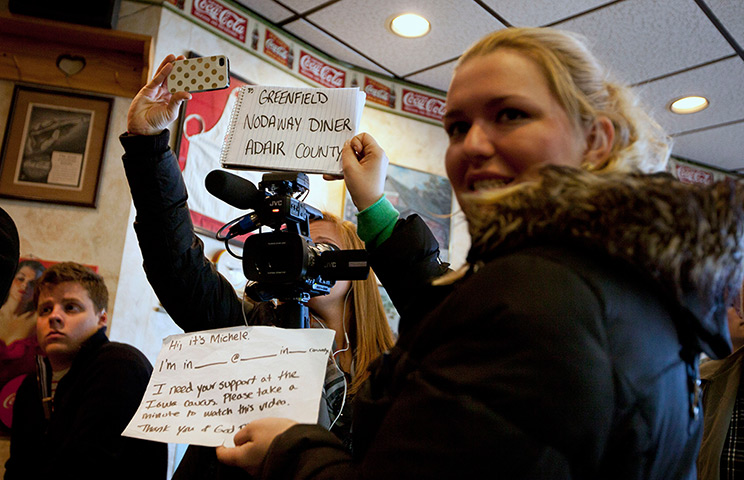 Coca-Cola
Coca-Cola
Coca-Cola
Coca-Cola
GREENFIELD
NODAWAY DINER
ADAIR COUNTY
JVC
Hi, it's Michele.
I'm in ___ @ ___ in ___ county
I need your support at the
Iowa caucus. Please take a
minute to watch this video.
Thank you & God